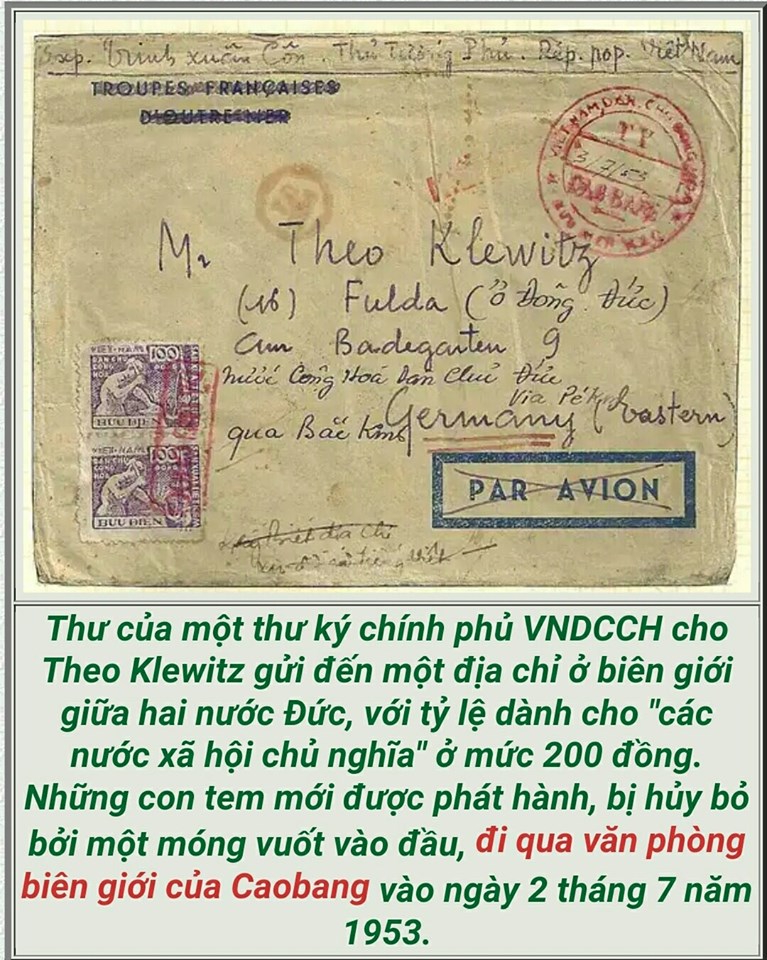 Exp. Trinh xuân Côn. Thủ Tướng Phủ. Rép. pop. Việt Nam
TROUPES FRANÇAISES
D'OUTRE-MER
VIET NAM DAN CHU CONG HOA
T.P
3/7/53
CAO BANG
Mr Theo Klewitz
(16) Fulda (ở Đông Đức)
am Badegarten 9
nước Cộng Hoà Dân Chủ Đức
Via Pékin
qua Bắc Kinh Germany (Eastern)
VIỆT-NAM 100
DÂN CHỦ
CỘNG
HÒA
BƯU ĐIỆN
VIỆT-NAM 100
DÂN CHỦ
CỘNG
HÒA
BƯU ĐIỆN
PAR AVION
địa chỉ
Thư của một thư ký chính phủ VNDCCH cho
Theo Klewitz gửi đến một địa chỉ ở biên giới
giữa hai nước Đức, với tỷ lệ dành cho "các
nước xã hội chủ nghĩa" ở mức 200 đồng.
Những con tem mới được phát hành, bị hủy bỏ
bởi một móng vuốt vào đầu, đi qua văn phòng
biên giới của Caobang vào ngày 2 tháng 7 năm
1953.